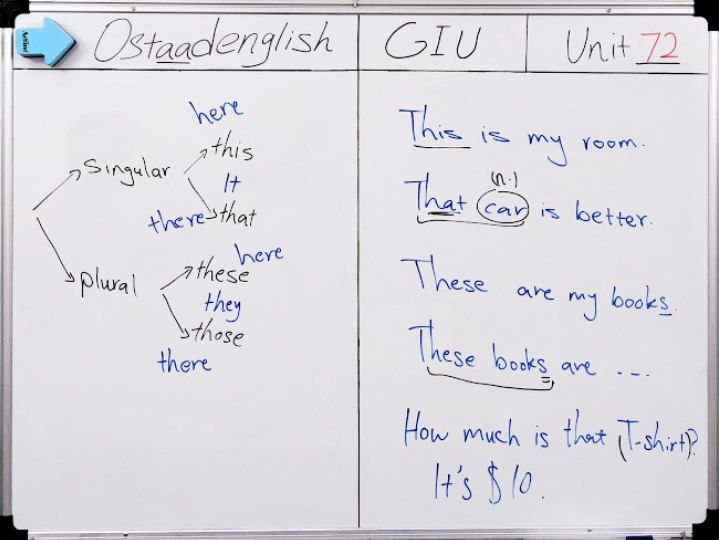 Ostaadenglish
GIU
Unit 72
here
this
Singular
It
there that
here
these
plural
they
those
there
This is my room.
(n.)
That car is better.
These are my books.
These books are ---
How much is that (T-shirt)?
It's $10.